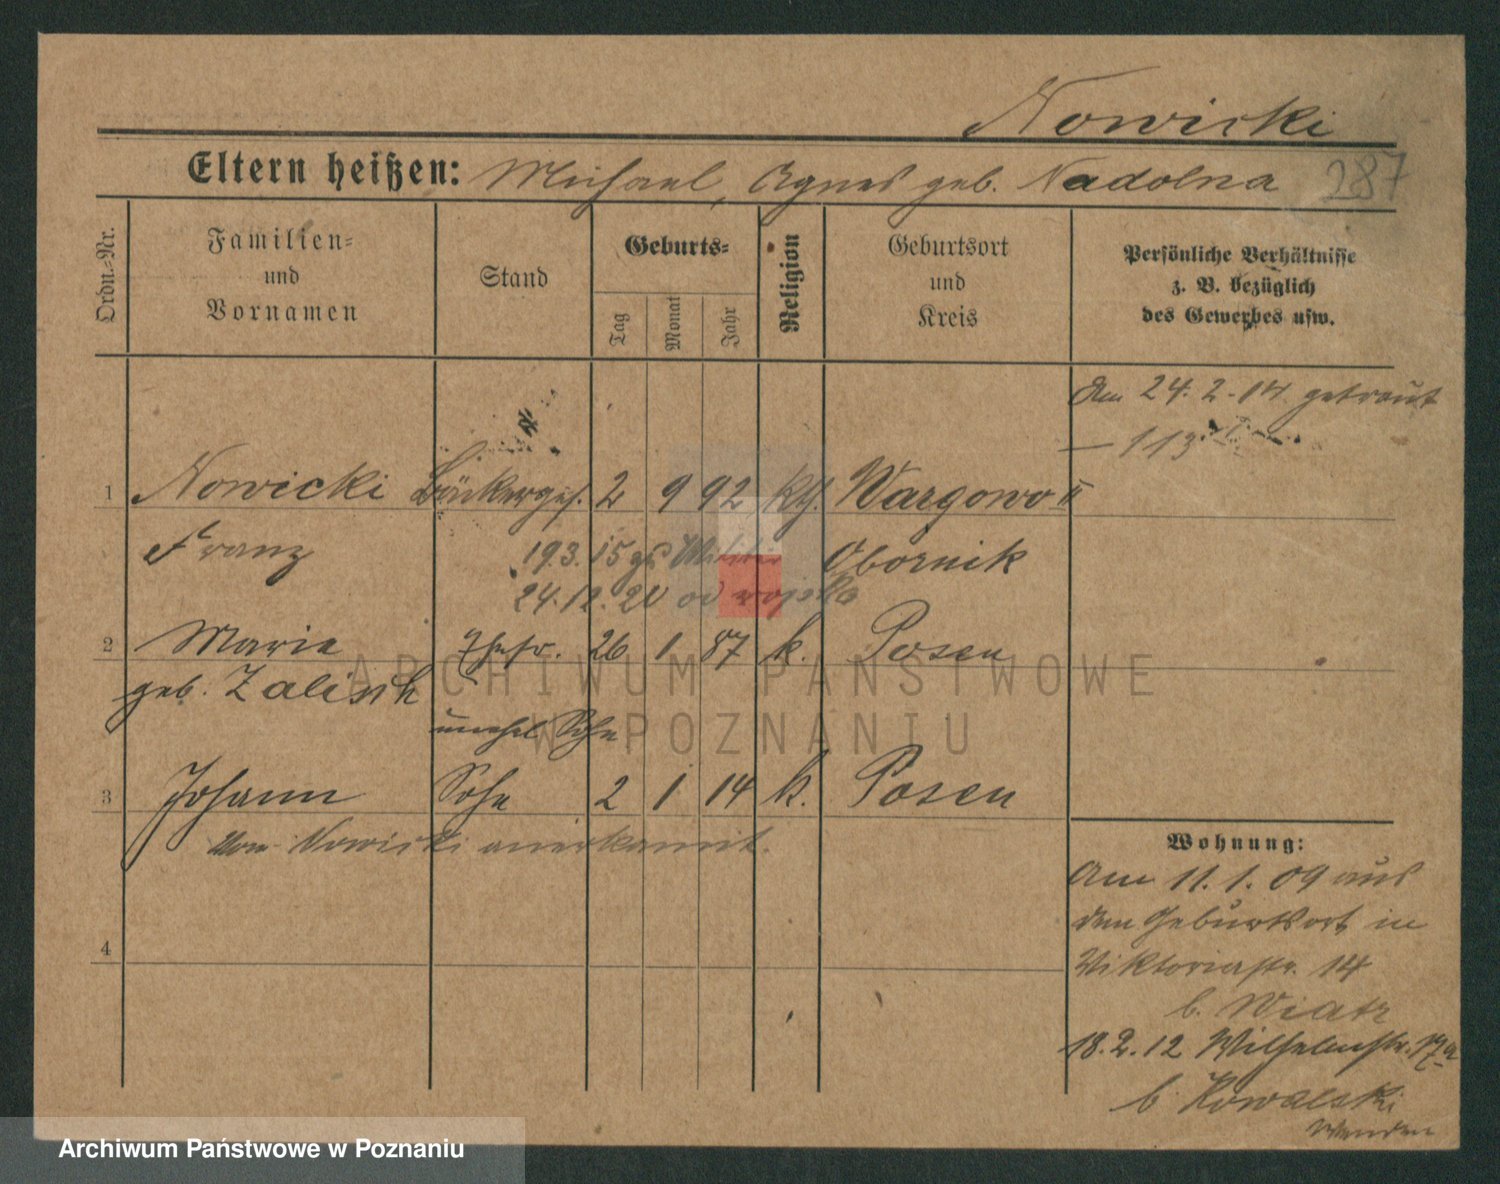 Nowicki
Eltern heißen: Michael, Agnes geb. Nadolna
287
Ordn.-Nr.
Familien=
und
Vornamen
Stand
Geburts=
Tag
Monat
Jahr
Religion
Geburtsort
und
Kreis
Persönliche Verhältnisse
z. B. bezüglich
des Gewerbes usw.
Am 24.2.14 getraut
— 113
1 Nowicki Bäckerges. 2 9 92 kth. Wargowo II
Franz 19.3.15 zs Militär Obornik
24.12.20 od wojska
2 Marie Ehefr. 26 1 87 k. Posen
geb. Zalisch
unehel Sohn
3 Johann Sohn 2 1 14 k. Posen
von Nowicki anerkannt.
4
Wohnung:
Am 11.1.09 aus
dem Geburtsort in
Viktoriastr. 14
b. Wiatr
18.2.12 Wilhelmstr. 17a
b Kowalski
Wenden
ARCHIWUM PAŃSTWOWE
W POZNANIU
Archiwum Państwowe w Poznaniu